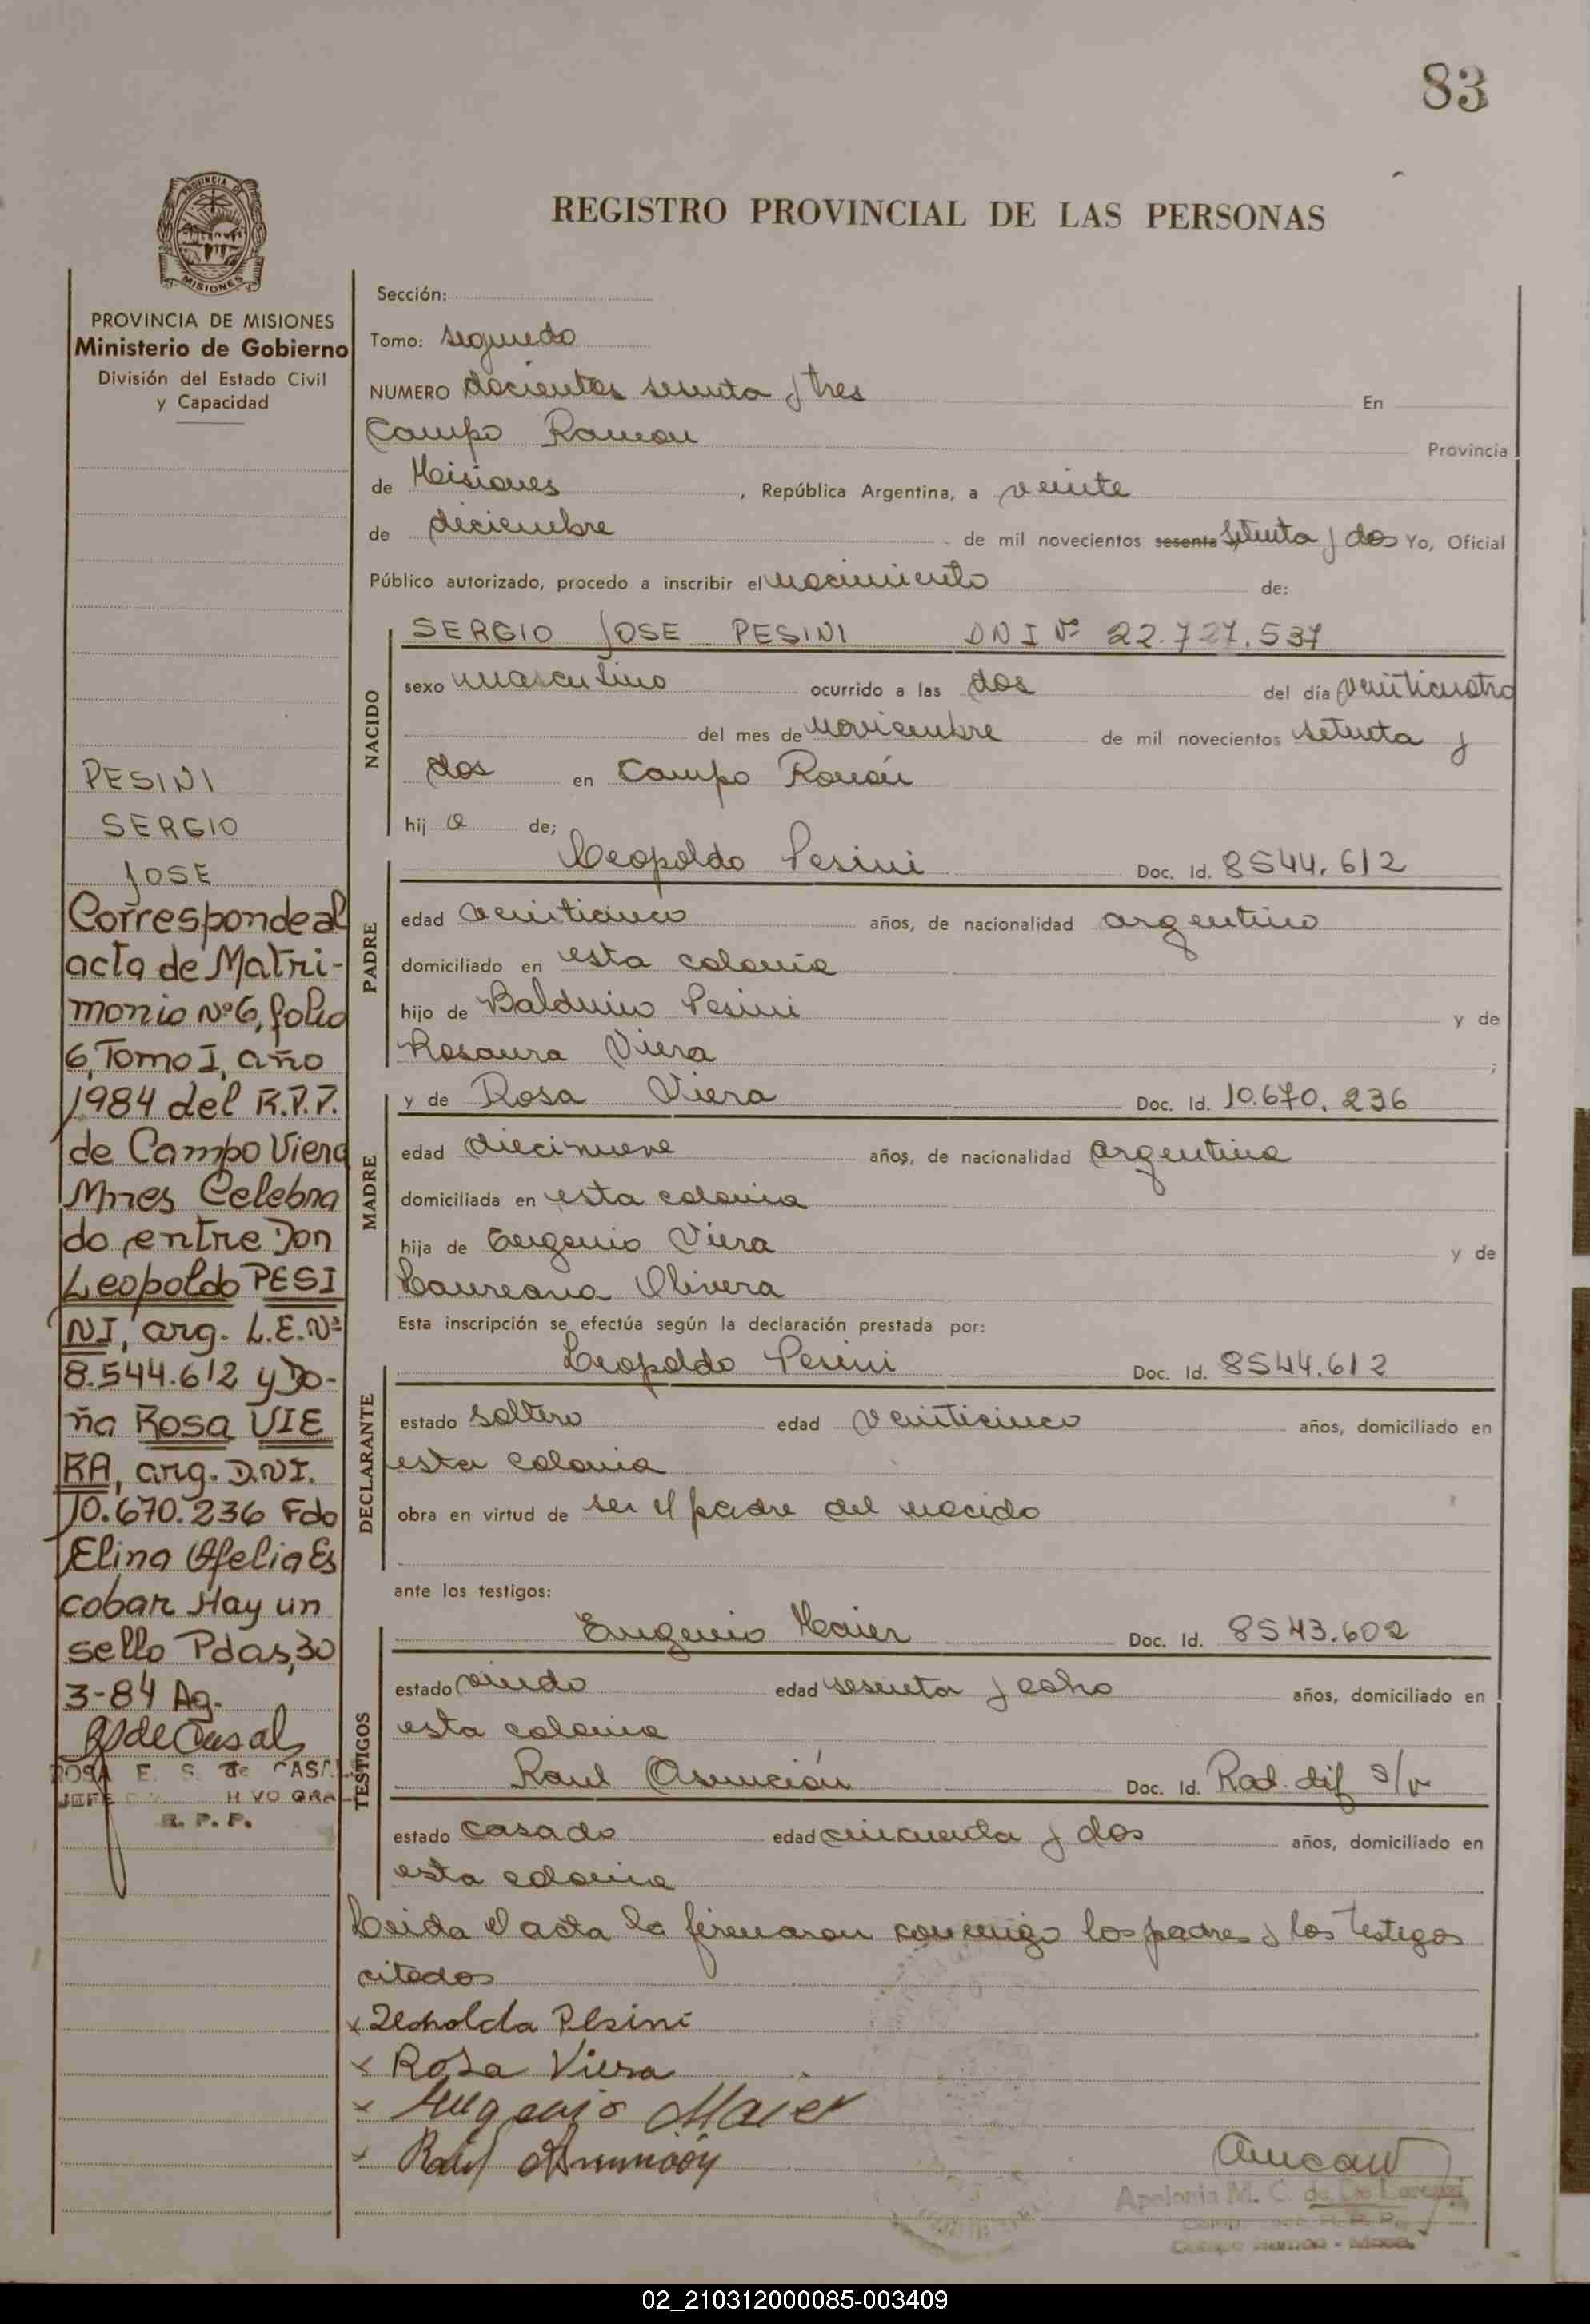 83
PROVINCIA DE MISIONES
REGISTRO PROVINCIAL DE LAS PERSONAS
PROVINCIA DE MISIONES
Ministerio de Gobierno
División del Estado Civil
y Capacidad
PESINI
SERGIO
JOSE
Corresponde al
acta de Matri-
monio Nº 6, folio
6, Tomo I, año
1984 del R.P.P.
de Campo Viera
Mnes Celebra
do entre Don
Leopoldo PESI
NI, arg. L.E. Nº
8.544.612 y Do-
ña Rosa VIE
RA, arg. D.N.I.
10.670.236 Fdo
Elina Ofelia Es
cobar Hay un
sello Pdas, 30
3-84 Ag.
de Casal
ROSA E. S. de CASAL
JEFE
R. P. P.
Sección:
Tomo: segundo
NUMERO docientos sesenta y tres En
Campo Ramon Provincia
de Misiones, República Argentina, a veinte
de diciembre de mil novecientos sesenta setenta y dos Yo, Oficial
Público autorizado, procedo a inscribir el nacimiento de:
NACIDO
SERGIO JOSE PESINI DNI Nº 22.727.537
sexo masculino ocurrido a las dos del día veinticuatro
del mes de noviembre de mil novecientos setenta y
dos en Campo Ramón
hijo de;
PADRE
Leopoldo Pesini Doc. Id. 8544.612
edad veinticinco años, de nacionalidad argentino
domiciliado en esta colonia
hijo de Balduino Pesini y de
Rosaura Viera ;
MADRE
y de Rosa Viera Doc. Id. 10.670.236
edad diecinueve años, de nacionalidad argentina
domiciliada en esta colonia
hija de Eugenio Viera y de
Laureana Olivera
Esta inscripción se efectúa según la declaración prestada por:
DECLARANTE
Leopoldo Pesini Doc. Id. 8544.612
estado soltero edad veinticinco años, domiciliado en
esta colonia
obra en virtud de ser el padre del nacido
ante los testigos:
TESTIGOS
Eugenio Maier Doc. Id. 8543.602
estado viudo edad sesenta y ocho años, domiciliado en
esta colonia
Raul Asunción Doc. Id. Rad. dif s/v
estado casado edad cincuenta y dos años, domiciliado en
esta colonia
Leida el acta la firmaron conmigo los padres y los testigos
citados
x Leopoldo Pesini
x Rosa Viera
x Eugenio Maier
x Raul Asunción
Apolonia M. C. de De Lorenzi
Campo Ramon - Mnes.
02_210312000085-003409